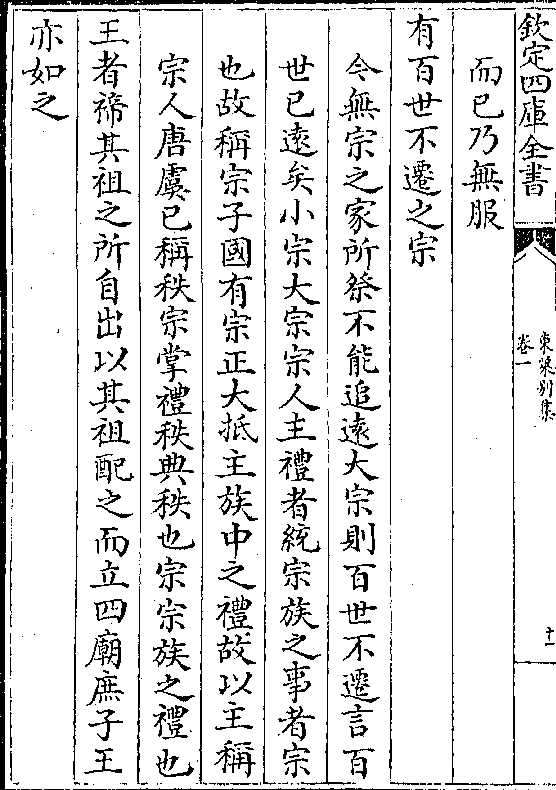 欽定四庫全書
東萊别集
卷一
十一
而已乃無服
有百世不遷之宗
今無宗之家所祭不能追遠大宗則百世不遷言百
世已遠矣小宗大宗宗人主禮者統宗族之事者宗
也故稱宗子國有宗正大抵主族中之禮故以主稱
宗人唐虞已稱秩宗掌禮秩典秩也宗宗族之禮也
王者禘其祖之所自出以其祖配之而立四廟庶子王
亦如之